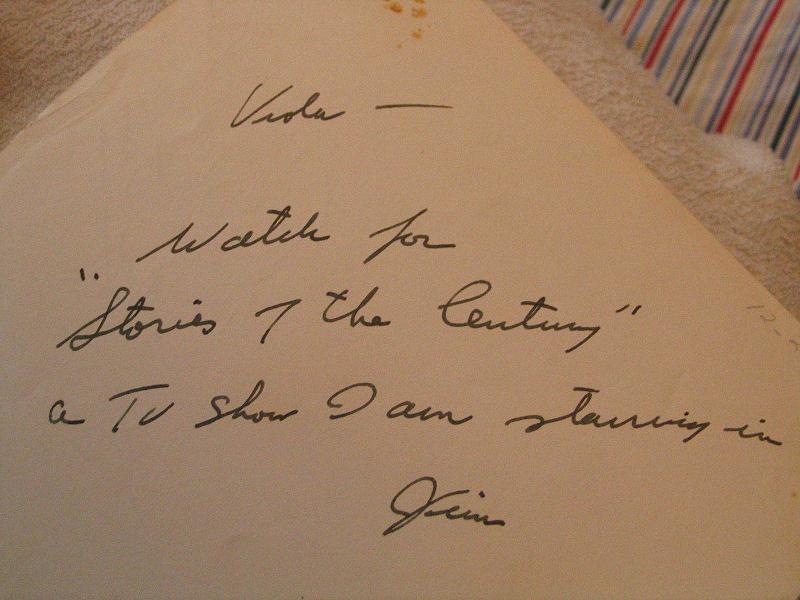 Viola —
Watch for
"Stories of the Century"
a TV show I am starring in
Jim